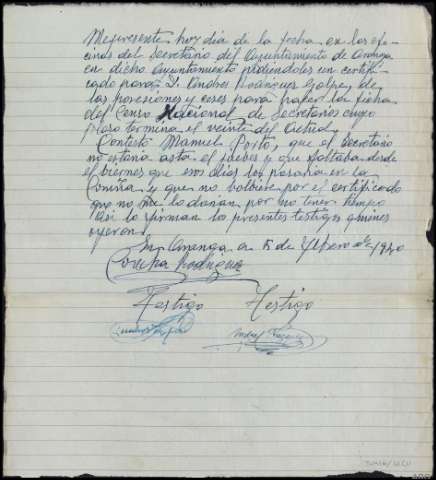 Mepresente hoy dia de la fecha en las ofi-
cinas del Secretario del Ayuntamiento de Aranga
en dicho Ayuntamiento pidiendoles un certifi-
cado para D. Andres Rodriguez Golpe, de
las posesiones y ceses para hacer la ficha
del Censo Nacional de Secretarios cuyo
plazo termina el veinte del actual
Contestó Manuel Porto, que el Secretario
no estaria asta el jueves y que faltaba desde
el biernes que esos dias los pasaria en la
Coruña y que no bolbiese por el certificado
que no me lo darian por no tener tiempo
Asi lo firman los presentes testigos quienes
oyeron
En Aranga a 15 de Febrero de 1940
Rodriguez
Testigo Testigo